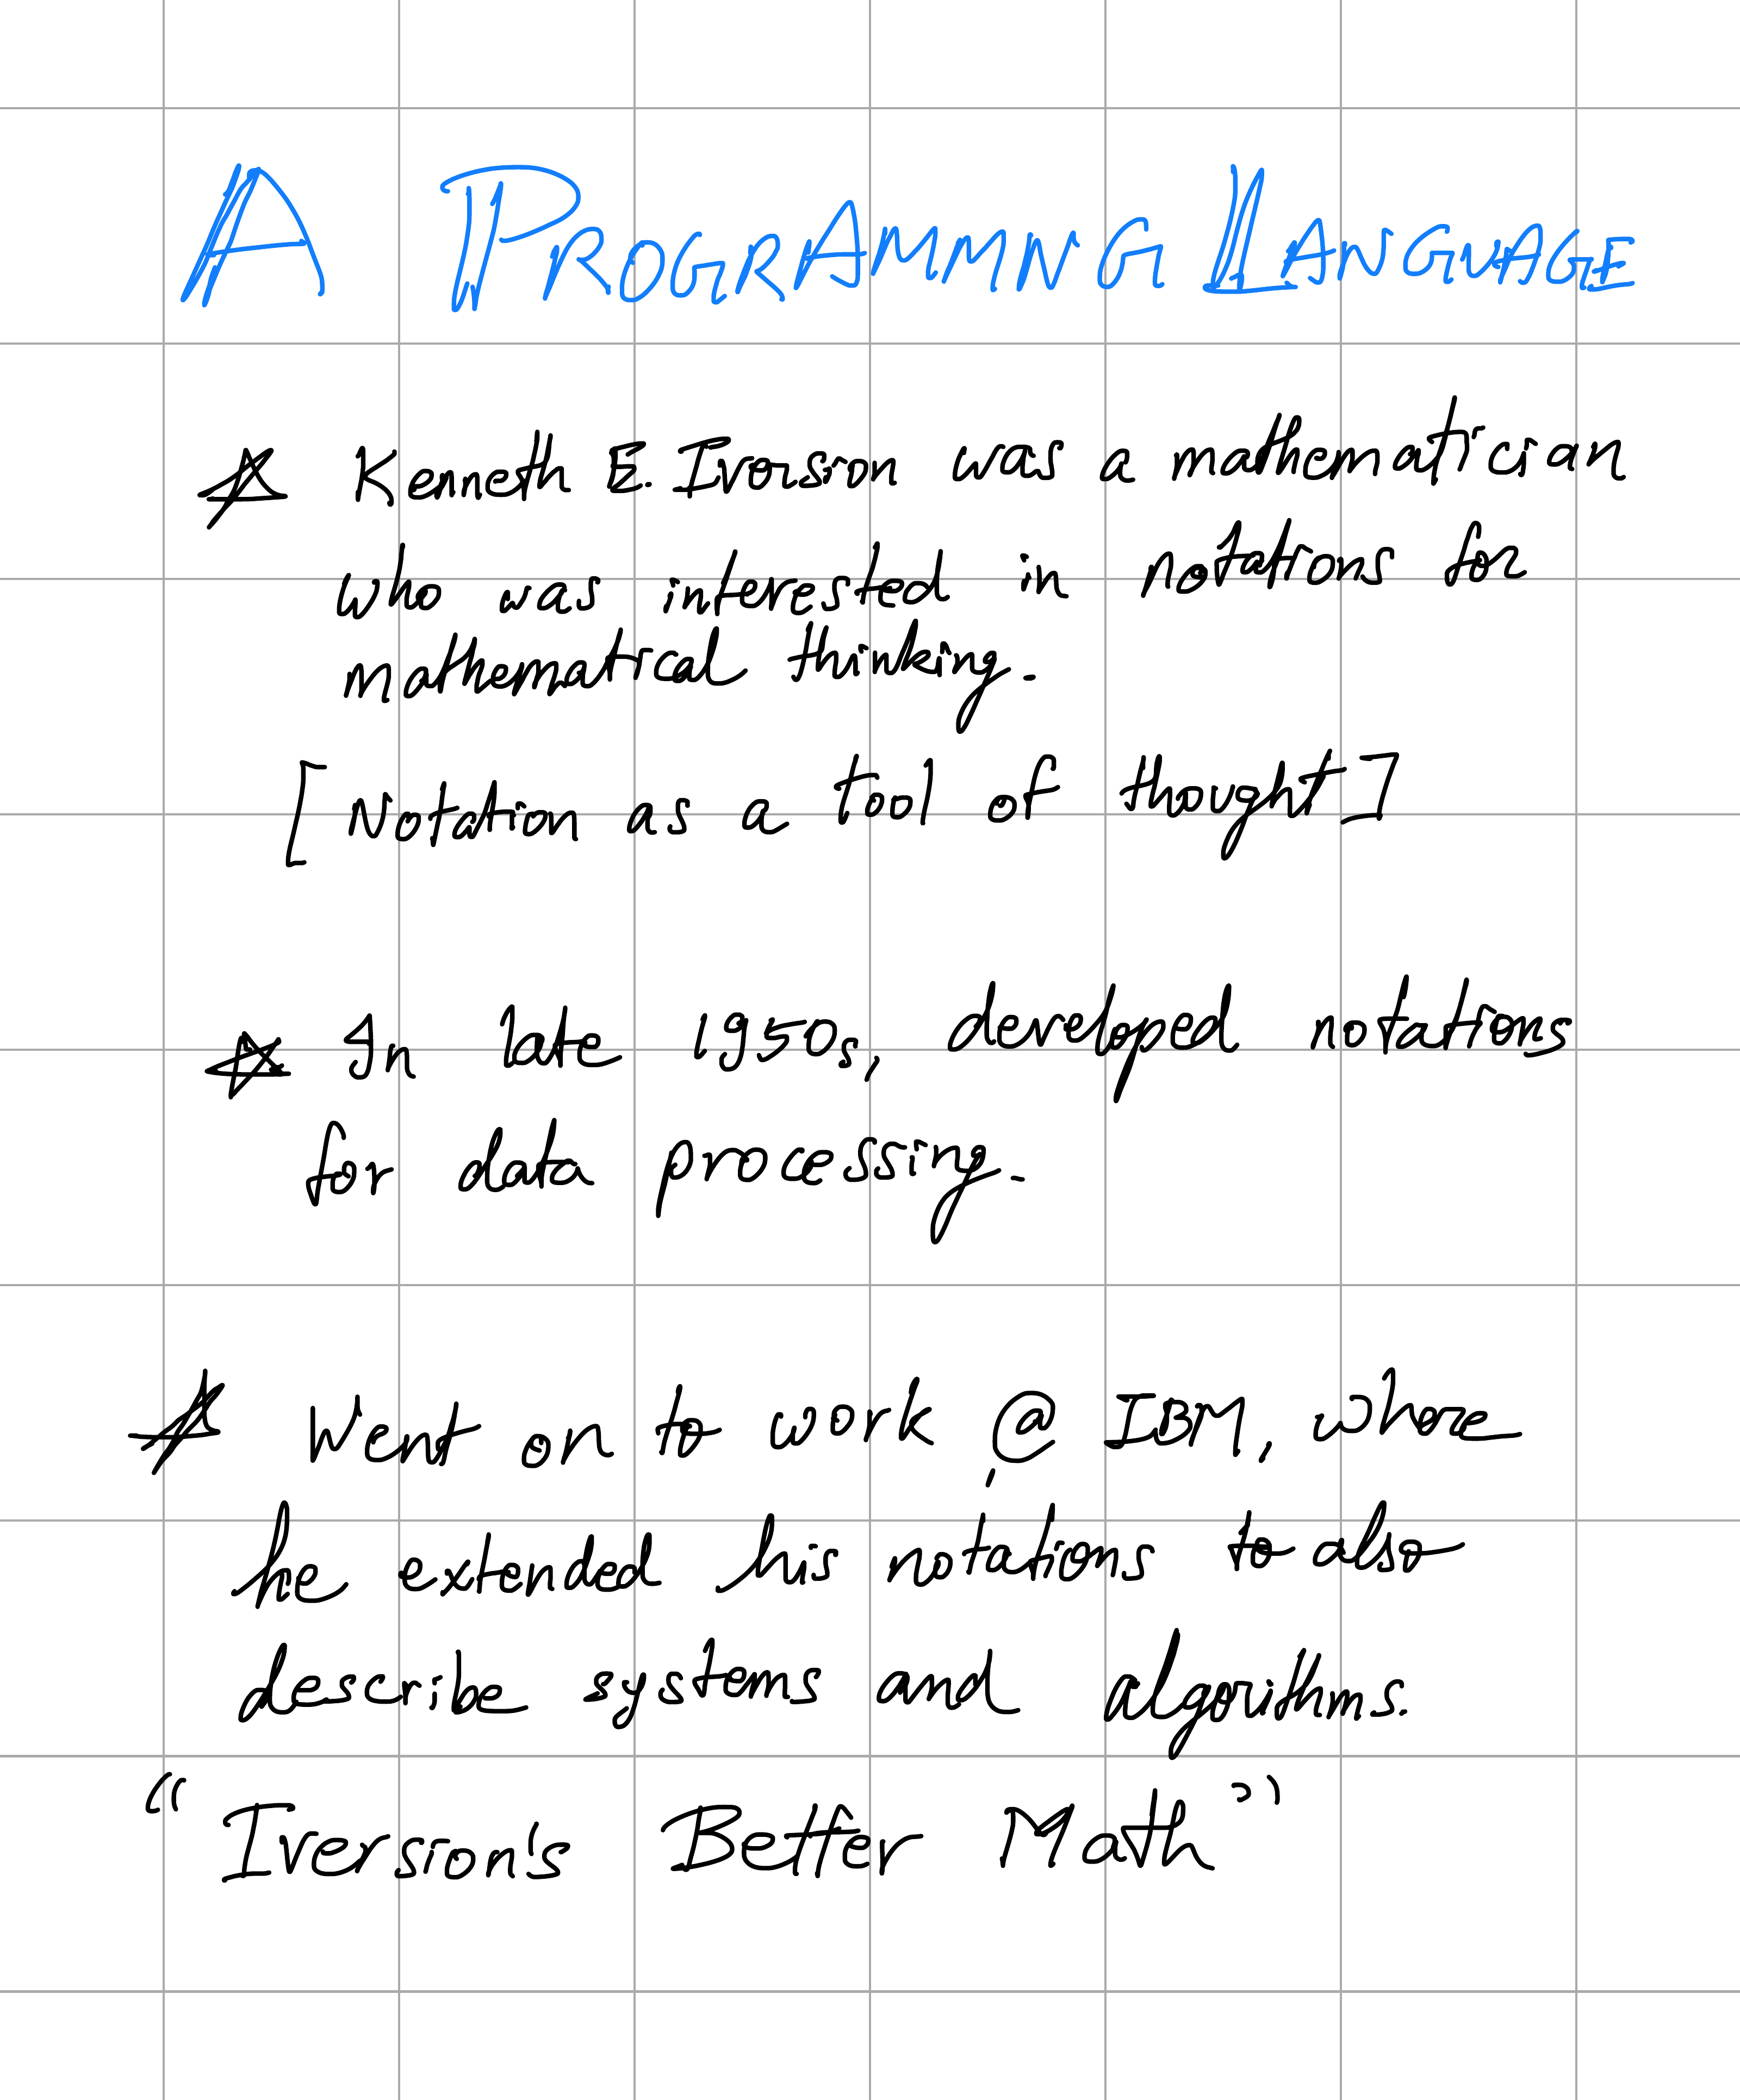 A PROGRAMMING LANGUAGE
☆ Kenneth E. Iverson was a mathematician
who was interested in notations for
mathematical thinking.
[Notation as a tool of thought]
☆ In late 1950s, developed notations
for data processing.
☆ Went on to work @ IBM, where
he extended his notations to also
describe systems and algorithms.
“Iversion's Better Math”